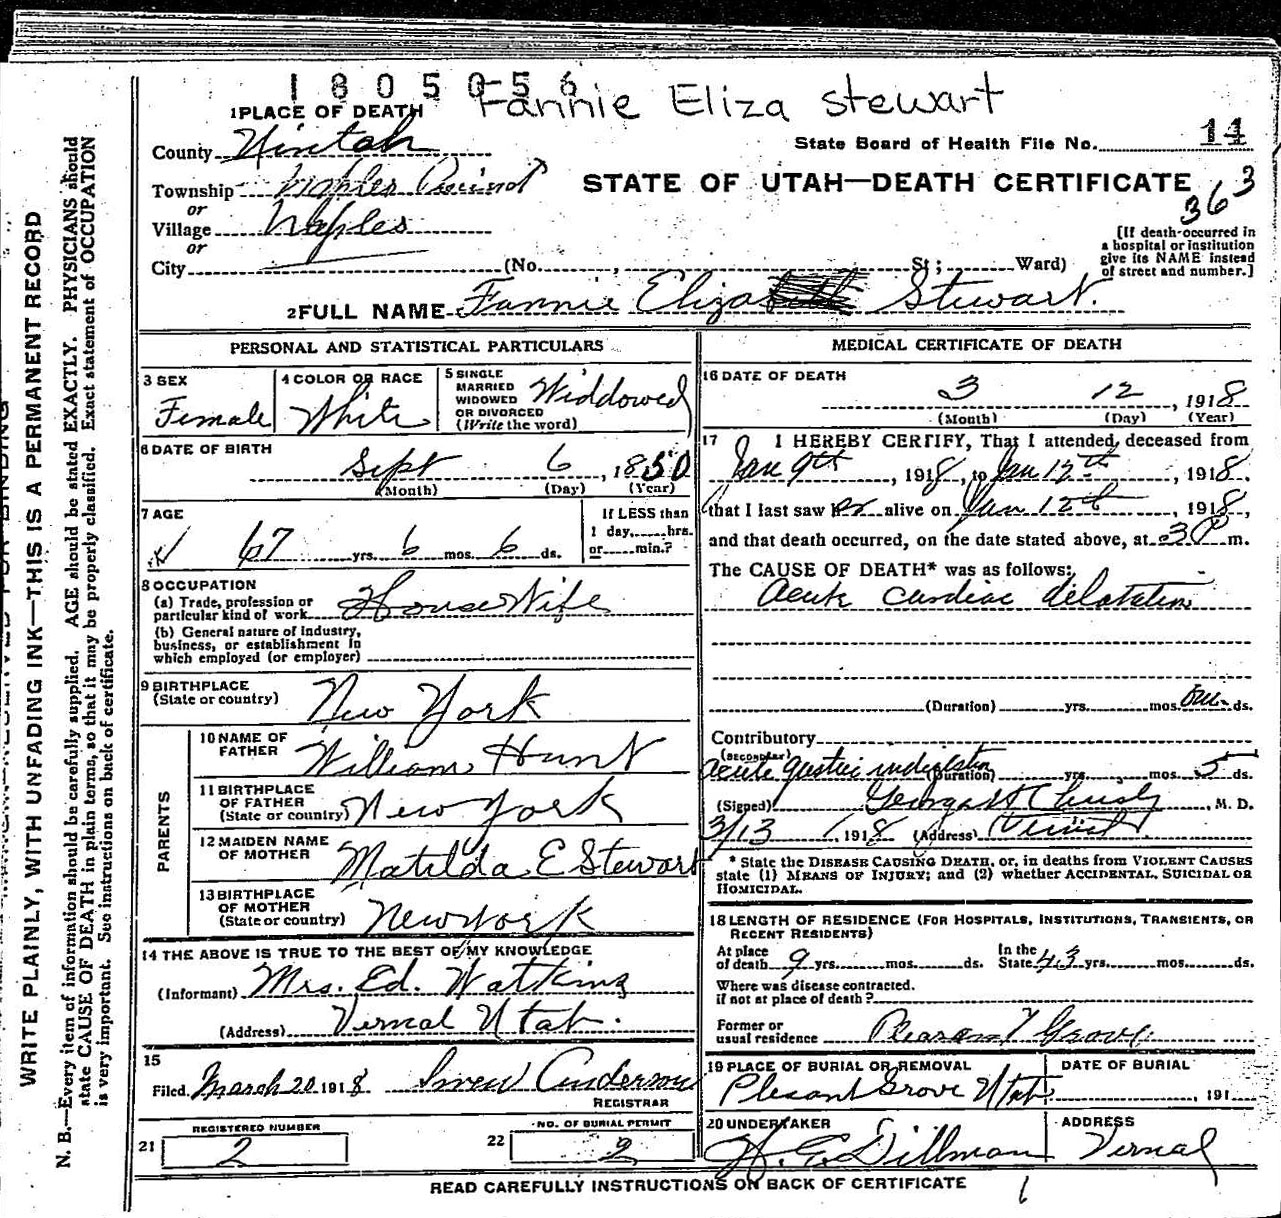 1805056 Fannie Eliza Stewart
1 PLACE OF DEATH
State Board of Health File No. 14
County Uintah
Township Naples Precinct
or
STATE OF UTAH—DEATH CERTIFICATE 363
Village Naples
or
City (No. , St; Ward)
[If death occurred in
a hospital or institution
give its NAME instead
of street and number.]
2 FULL NAME Fannie Eliza Stewart.
PERSONAL AND STATISTICAL PARTICULARS
3 SEX
Female
4 COLOR OR RACE
White
5 SINGLE
MARRIED
WIDOWED
OR DIVORCED
(Write the word)
Widdowed
6 DATE OF BIRTH
Sept 6, 1850
(Month) (Day) (Year)
7 AGE
67 yrs. 6 mos. 6 ds.
If LESS than
1 day, hrs.
or min.?
8 OCCUPATION
(a) Trade, profession or
particular kind of work House Wife
(b) General nature of industry,
business, or establishment in
which employed (or employer)
9 BIRTHPLACE
(State or country) New York
PARENTS
10 NAME OF
FATHER William Hunt
11 BIRTHPLACE
OF FATHER
(State or country) New York
12 MAIDEN NAME
OF MOTHER Matilda E Stewart
13 BIRTHPLACE
OF MOTHER
(State or country) New York
14 THE ABOVE IS TRUE TO THE BEST OF MY KNOWLEDGE
(Informant) Mrs. Ed. Watkins
(Address) Vernal Utah.
15
Filed March 20 1918 Anderson
REGISTRAR
21 REGISTERED NUMBER
2
22 NO. OF BURIAL PERMIT
2
MEDICAL CERTIFICATE OF DEATH
16 DATE OF DEATH
3 12, 1918
(Month) (Day) (Year)
17 I HEREBY CERTIFY, That I attended deceased from
Jan 9th, 1918, to Jan 12th, 1918,
that I last saw her alive on Jan 12th, 1918,
and that death occurred, on the date stated above, at 3 P m.
The CAUSE OF DEATH* was as follows:
Acute cardiac dilatation
(Duration) yrs. mos. one ds.
Contributory
(SECONDARY)
Acute gastric indigestion (Duration) yrs. mos. 5 ds.
(Signed) Christy, M. D.
3/13 1918 (Address) Vernal
* State the DISEASE CAUSING DEATH, or, in deaths from VIOLENT CAUSES
state (1) MEANS OF INJURY; and (2) whether ACCIDENTAL, SUICIDAL OR
HOMICIDAL.
18 LENGTH OF RESIDENCE (FOR HOSPITALS, INSTITUTIONS, TRANSIENTS, OR
RECENT RESIDENTS)
At place
of death 9 yrs. mos. ds.
In the
State 43 yrs. mos. ds.
Where was disease contracted.
if not at place of death?
Former or
usual residence Pleasant Grove.
19 PLACE OF BURIAL OR REMOVAL
Plesant Grove Utah
DATE OF BURIAL
, 191
20 UNDERTAKER
Dillman
ADDRESS
Vernal
READ CAREFULLY INSTRUCTIONS ON BACK OF CERTIFICATE
WRITE PLAINLY, WITH UNFADING INK—THIS IS A PERMANENT RECORD
N. B.—Every item of information should be carefully supplied. AGE should be stated EXACTLY. PHYSICIANS should
state CAUSE OF DEATH in plain terms, so that it may be properly classified. Exact statement of OCCUPATION
is very important. See instructions on back of certificate.